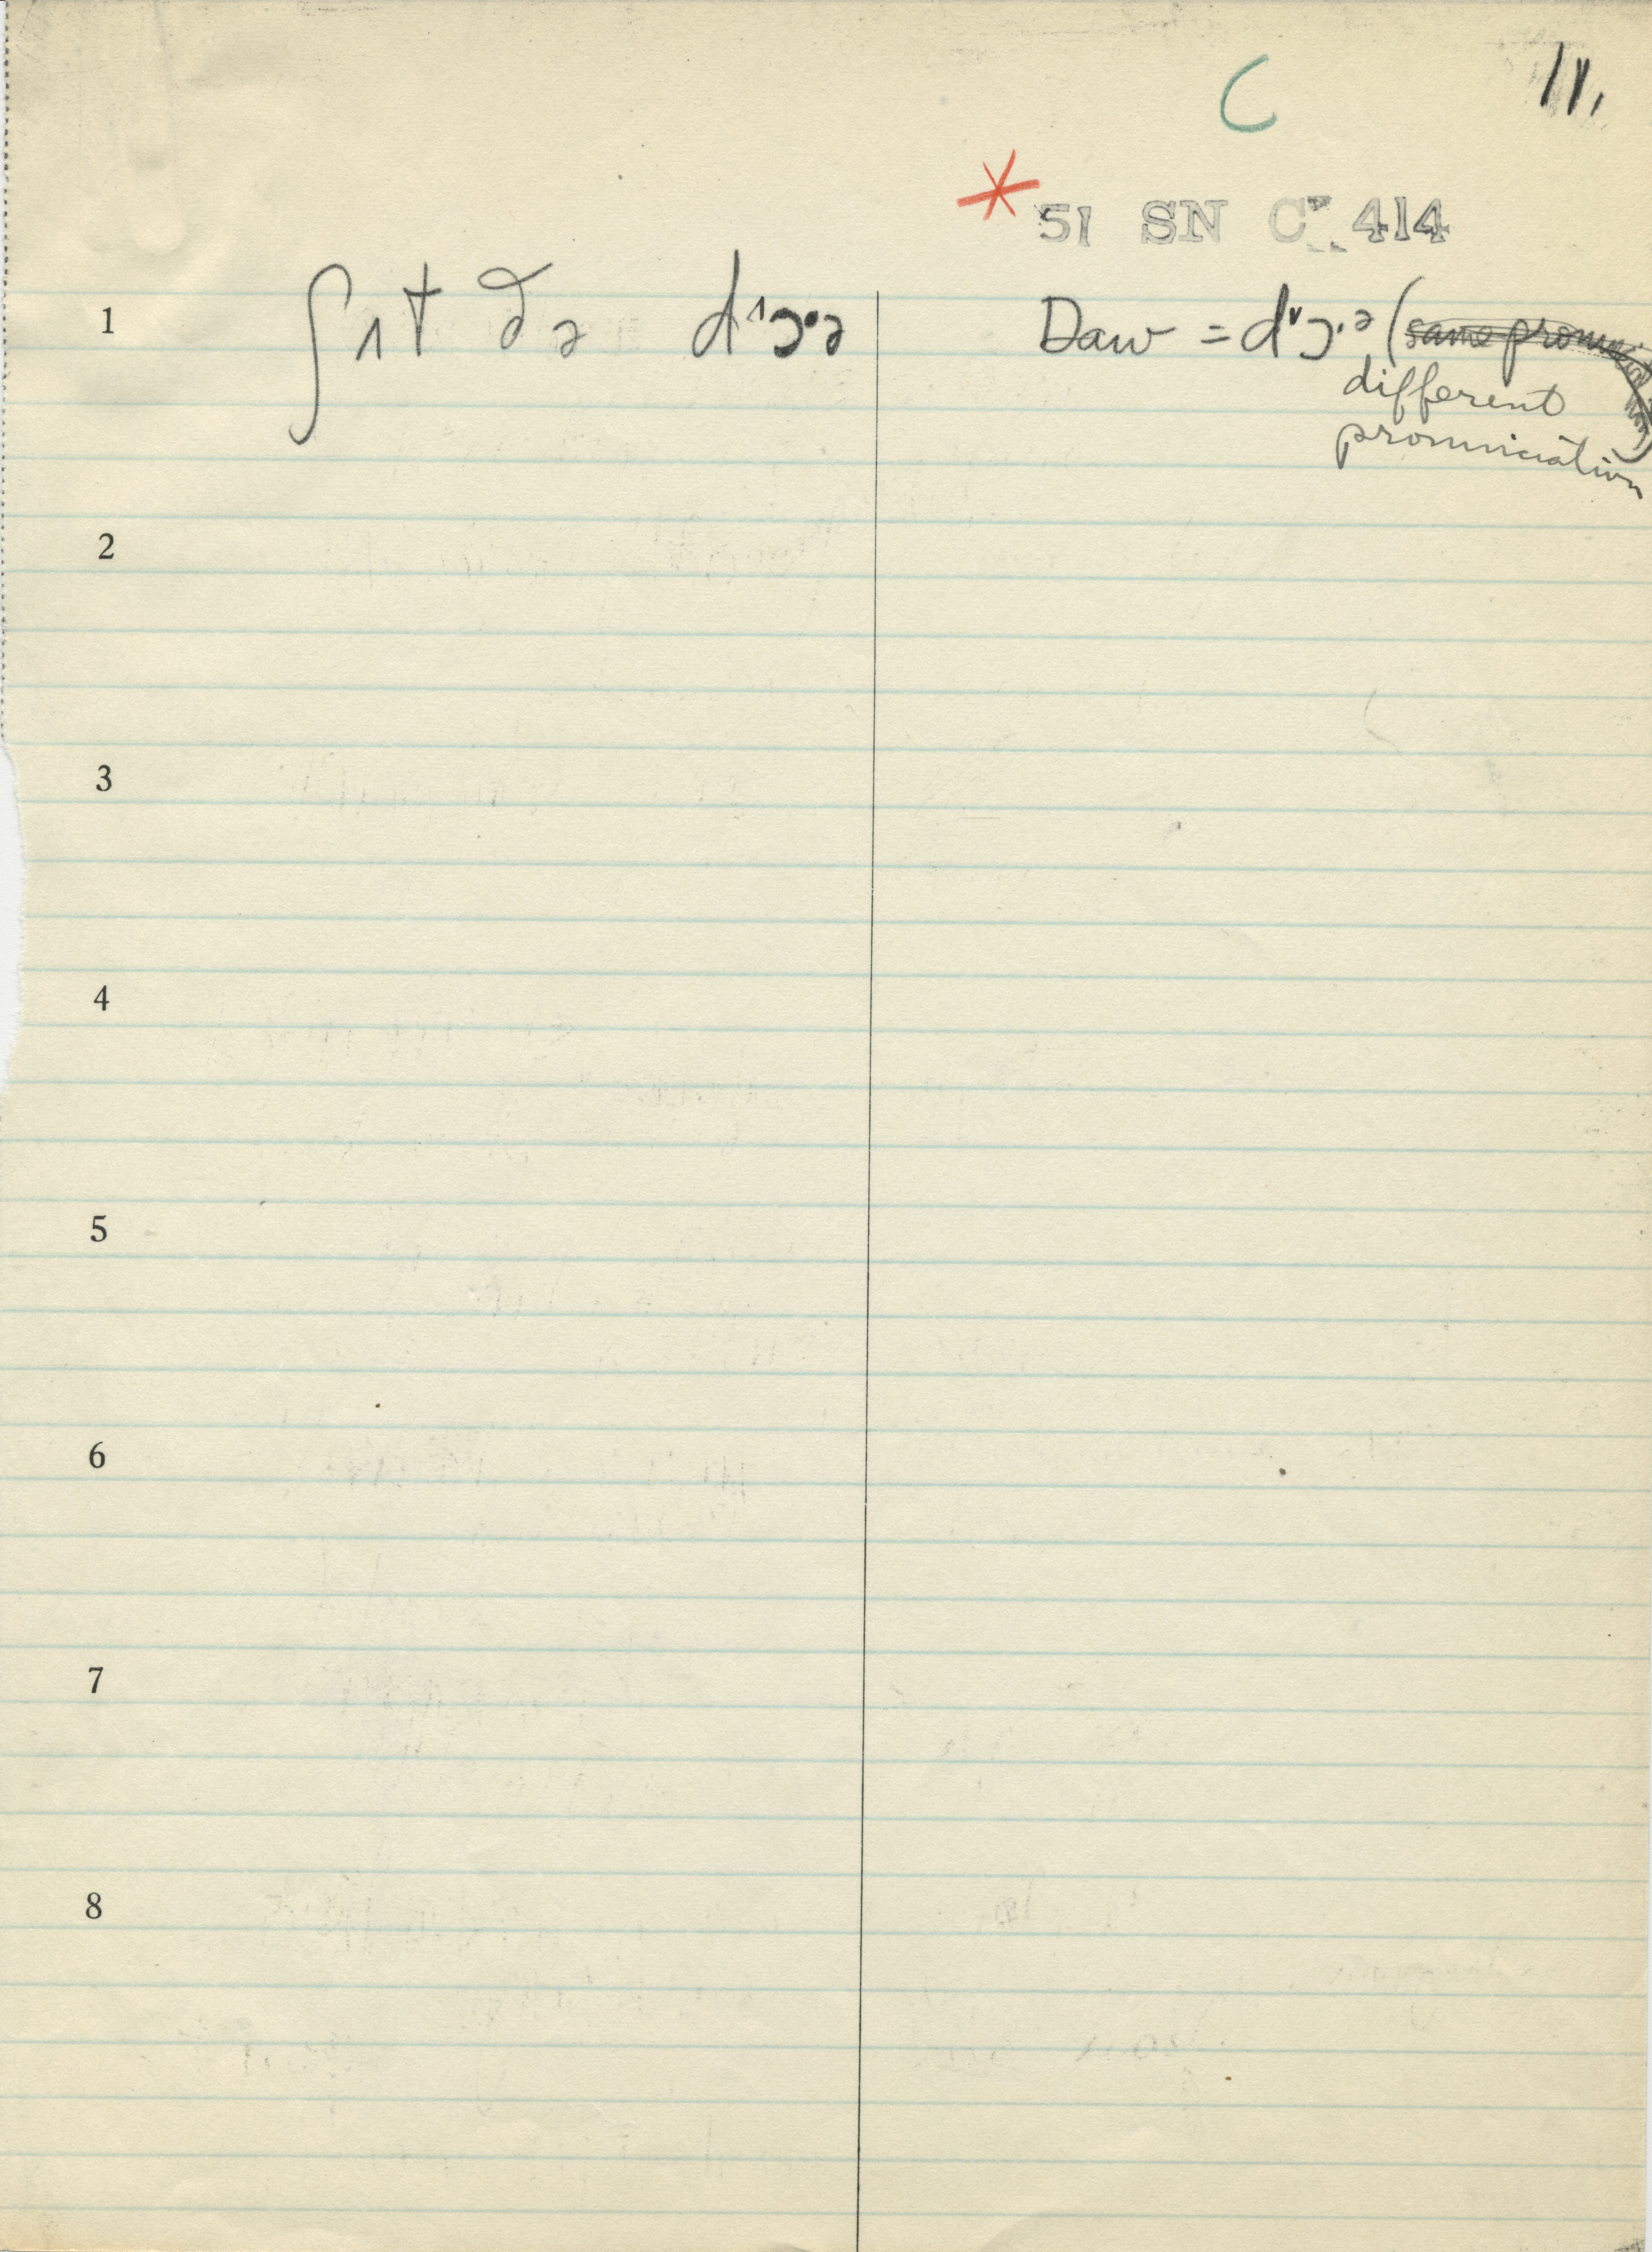 C
11.
* 51 SN C 414
1 ʃɪt ðə dˈɔ·ə Daw = dˇɔ·ə (same pronunciation)
different
pronunciation
2
3
4
5
6
7
8